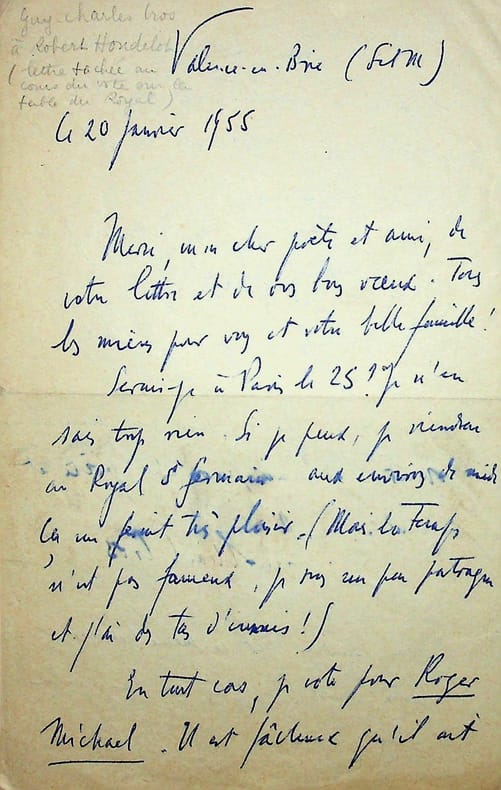 Guy-Charles Cros
à Robert Houdelot
(lettre tachée au
cours du vote sur la
table du Royal)
Valence-en-Brie (S et M)
le 20 Janvier 1955
Merci, mon cher poète et ami, de
votre lettre et de vos bons vœux. Tous
les miens pour vous et votre belle famille!
Serai-je à Paris le 25? Je n'en
sais trop rien. Si je peux, je viendrai
au Royal St Germain aux environs de midi
Ça me ferait très plaisir. (Mais le temps
n'est pas fameux, je suis un peu patraque
et j'ai des tas d'ennuis!)
En tout cas, je vote pour Roger
Michael. Il est fâcheux qu'il ait